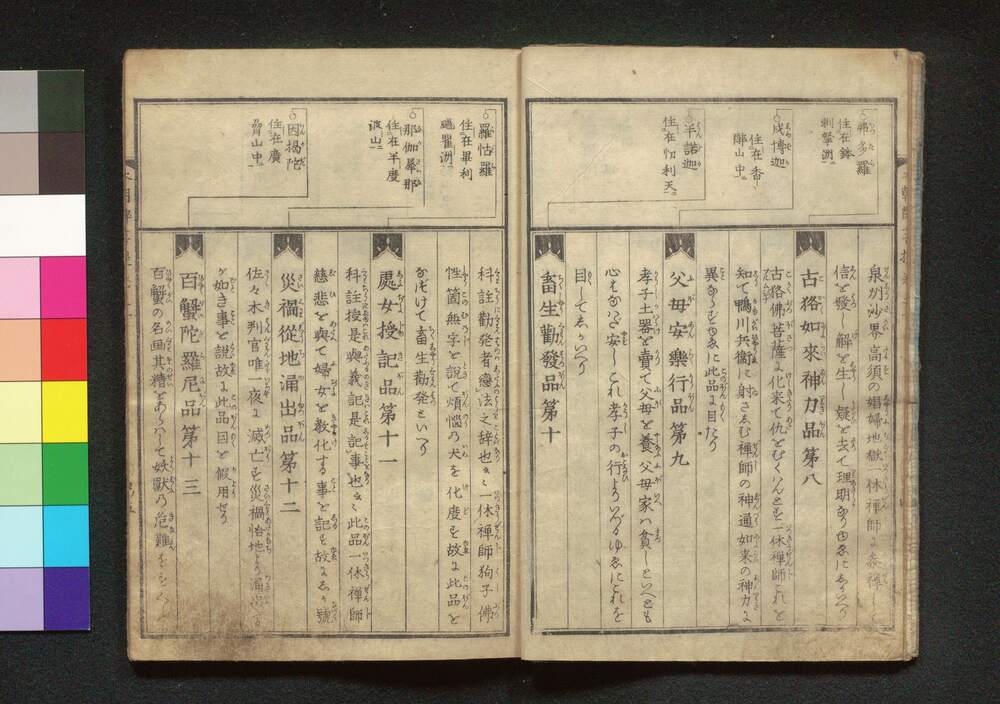 弗多羅
住在鉢
刺拏洲
戍博迦
住在香
山中
半諾迦
住在忉利天
泉州沙界高須の娼婦地獄一休禅師に参禅して
信を發し解を生し疑を去て理
古狢如來神力品第八
古狢佛菩薩に化来て仇をむくハんとを一休禅師これを
知て鴨川兵衞に射さゑむ禅師の神通如来の神力に
異ならを故に此品に目たり
父母安樂行品第九
孝子土器を賣て父母を養父母家ハ貧しといへとも
安しこれ孝子の行よりいつるゆゑにこれを
目してゑかいへり
畜生勸發品第十
羅怙羅
住在畢利
颺瞿洲
那伽犀那
住在半度
波山
因揭陀
住在廣
脅山中
科註勸発者戀法之辞也一休禅師狗子佛
性箇無字を説て煩悩の犬を化度を故に此品を
なぞけて畜生勸発といへり
處女授記品第十一
科註授是與義記是記事也此品一休禅師
慈悲を與て婦女を教化する事を記を故にゑか號
災禍從地涌出品第十二
佐々木判官唯一夜に滅亡を災禍恰地より涌出
か如き事を説故に此品目を假用せり
百蟹陀羅尼品第十三
百蟹の名画其精をあらハして妖獣の危難を